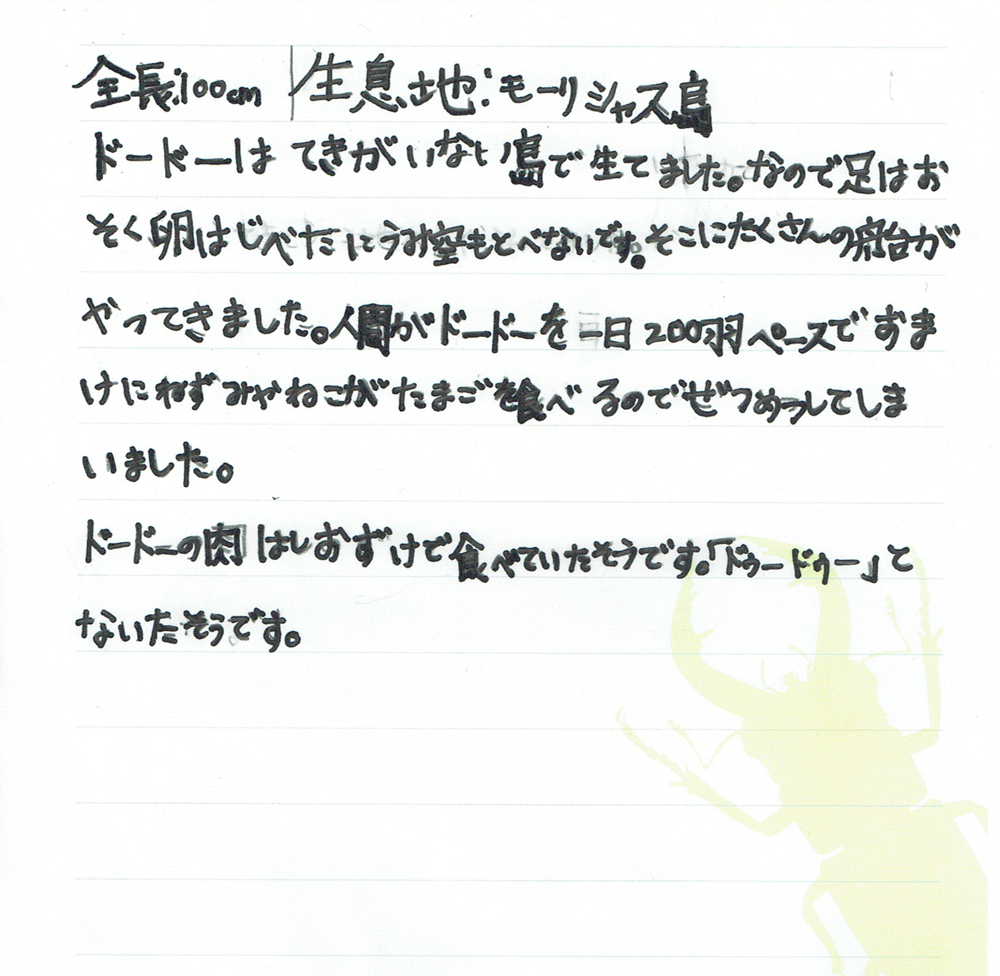 全長:100cm | 生息地:モーリシャス島
ドードーは てきがいない島で生てました。なので足はお
そく卵はじべたにうみ空もとべないです。そこにたくさんの船が
やってきました。人間がドードーを一日200羽ペースでおま
けにねずみやねこがたまごを食べるのでぜつめつしてしま
いました。
ドードーの肉はしおずけで食べていたそうです。「ドゥードゥー」と
ないたそうです。